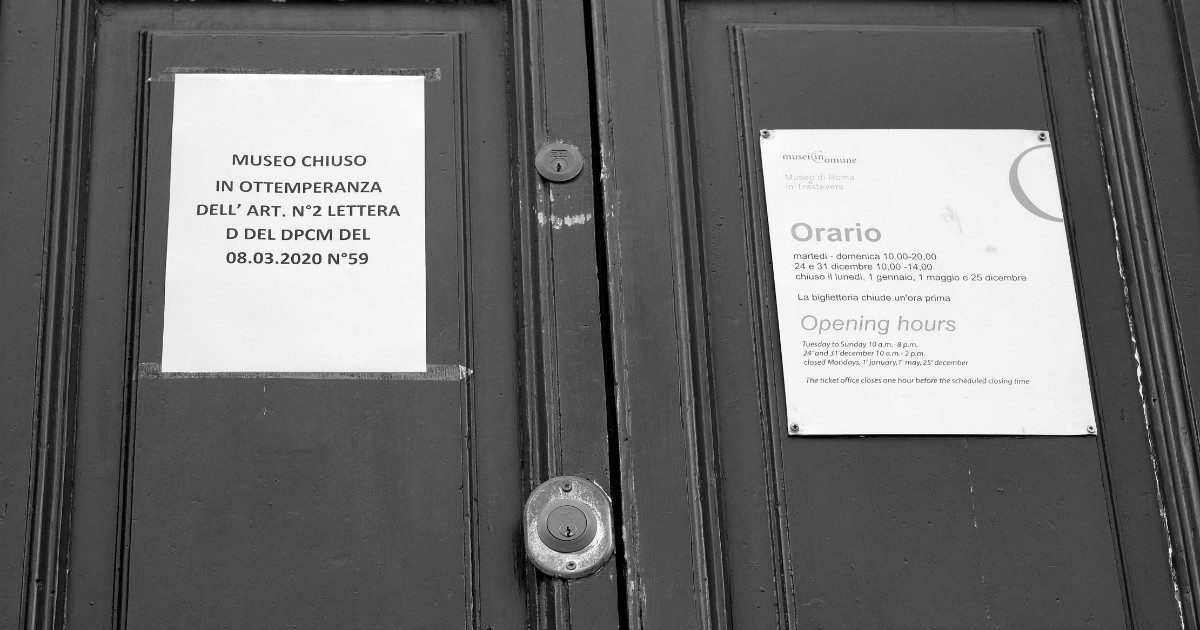 MUSEO CHIUSO
IN OTTEMPERANZA
DELL' ART. N°2 LETTERA
D DEL DPCM DEL
08.03.2020 N°59
musei in comune
Museo di Roma
in Trastevere
Orario
martedì - domenica 10,00-20,00
24 e 31 dicembre 10,00 -14,00
chiuso il lunedì, 1 gennaio, 1 maggio e 25 dicembre
La biglietteria chiude un'ora prima
Opening hours
Tuesday to Sunday 10 a.m.- 8 p.m.
24° and 31° december 10 a.m.- 2 p.m.
closed Mondays, 1° january, 1° may, 25° december
The ticket office closes one hour before the scheduled closing time